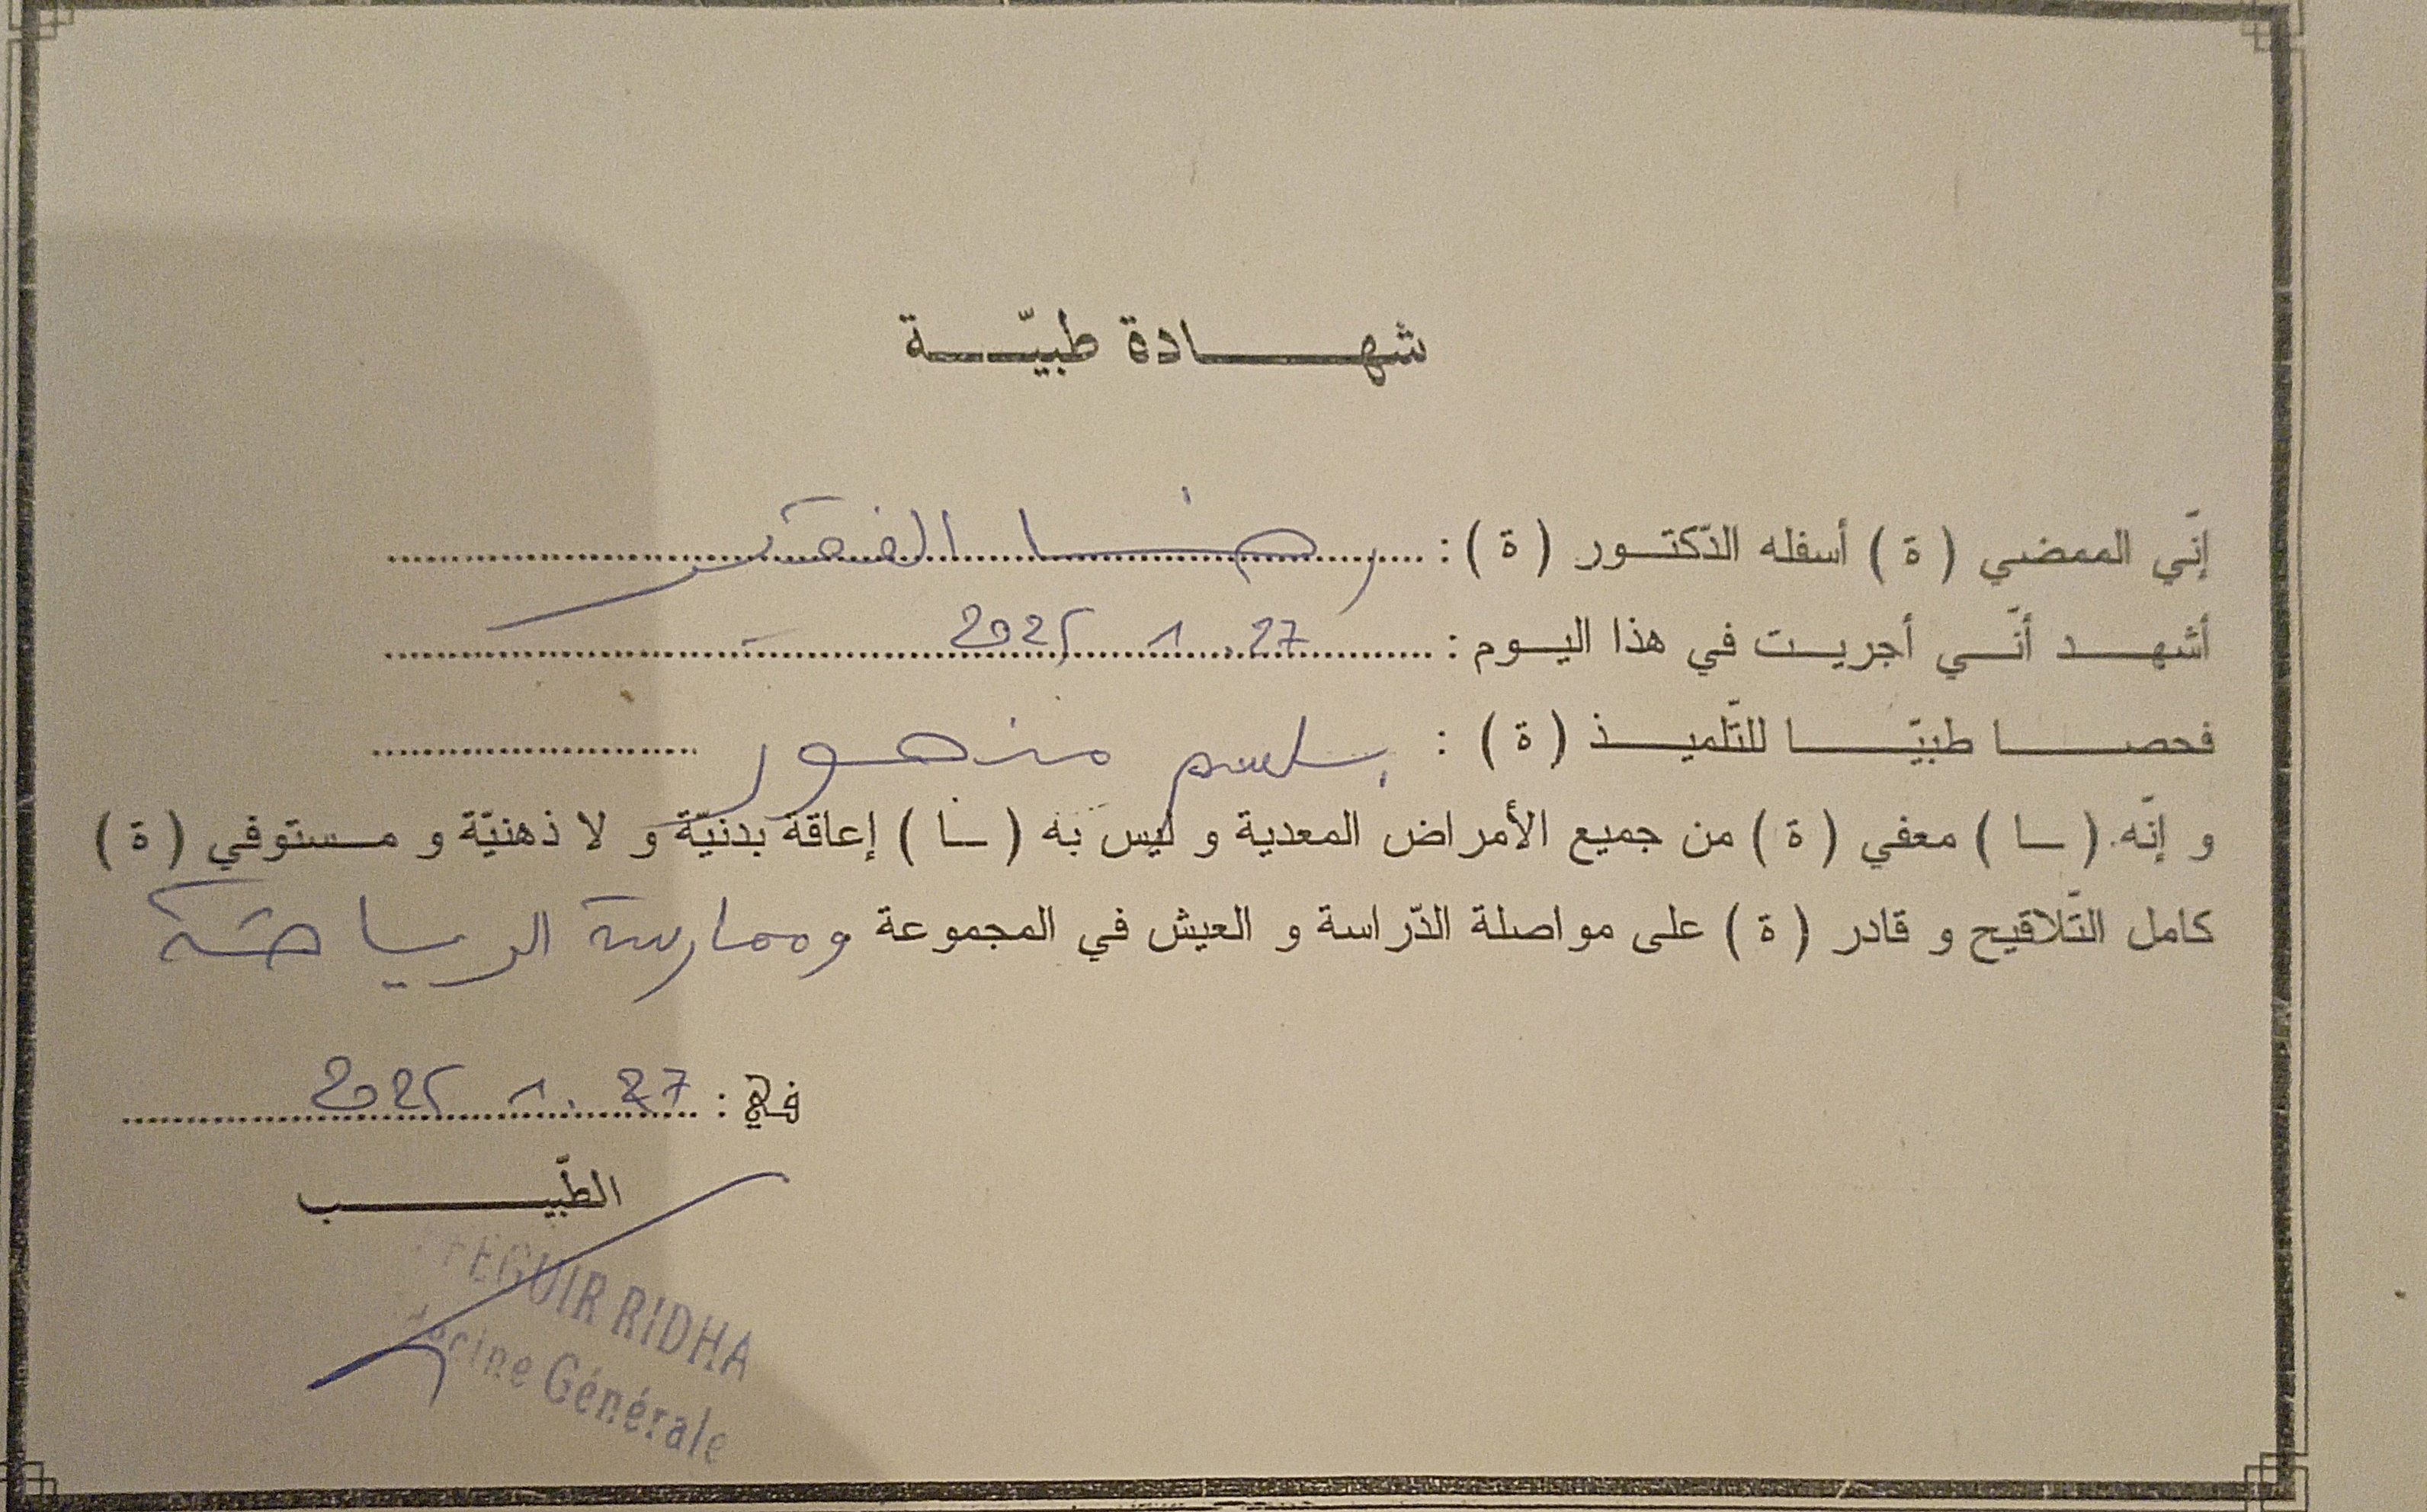 شهادة طبيّة
إنّي الممضي ( ة ) أسفله الدّكتور ( ة ) : رضا الفقير
أشهد أنّي أجريت في هذا اليوم : 27 . 1 2025
فحصا طبيّا للتّلميذ ( ة ) : باسم منصور
و إنّه ( ـا ) معفي ( ة ) من جميع الأمراض المعدية و ليس به ( ـا ) إعاقة بدنيّة و لا ذهنيّة و مستوفي ( ة )
كامل التّلاقيح و قادر ( ة ) على مواصلة الدّراسة و العيش في المجموعة وممارسة الرياضة
في : 27 . 1 2025
الطّبيب
RIDHA
Générale